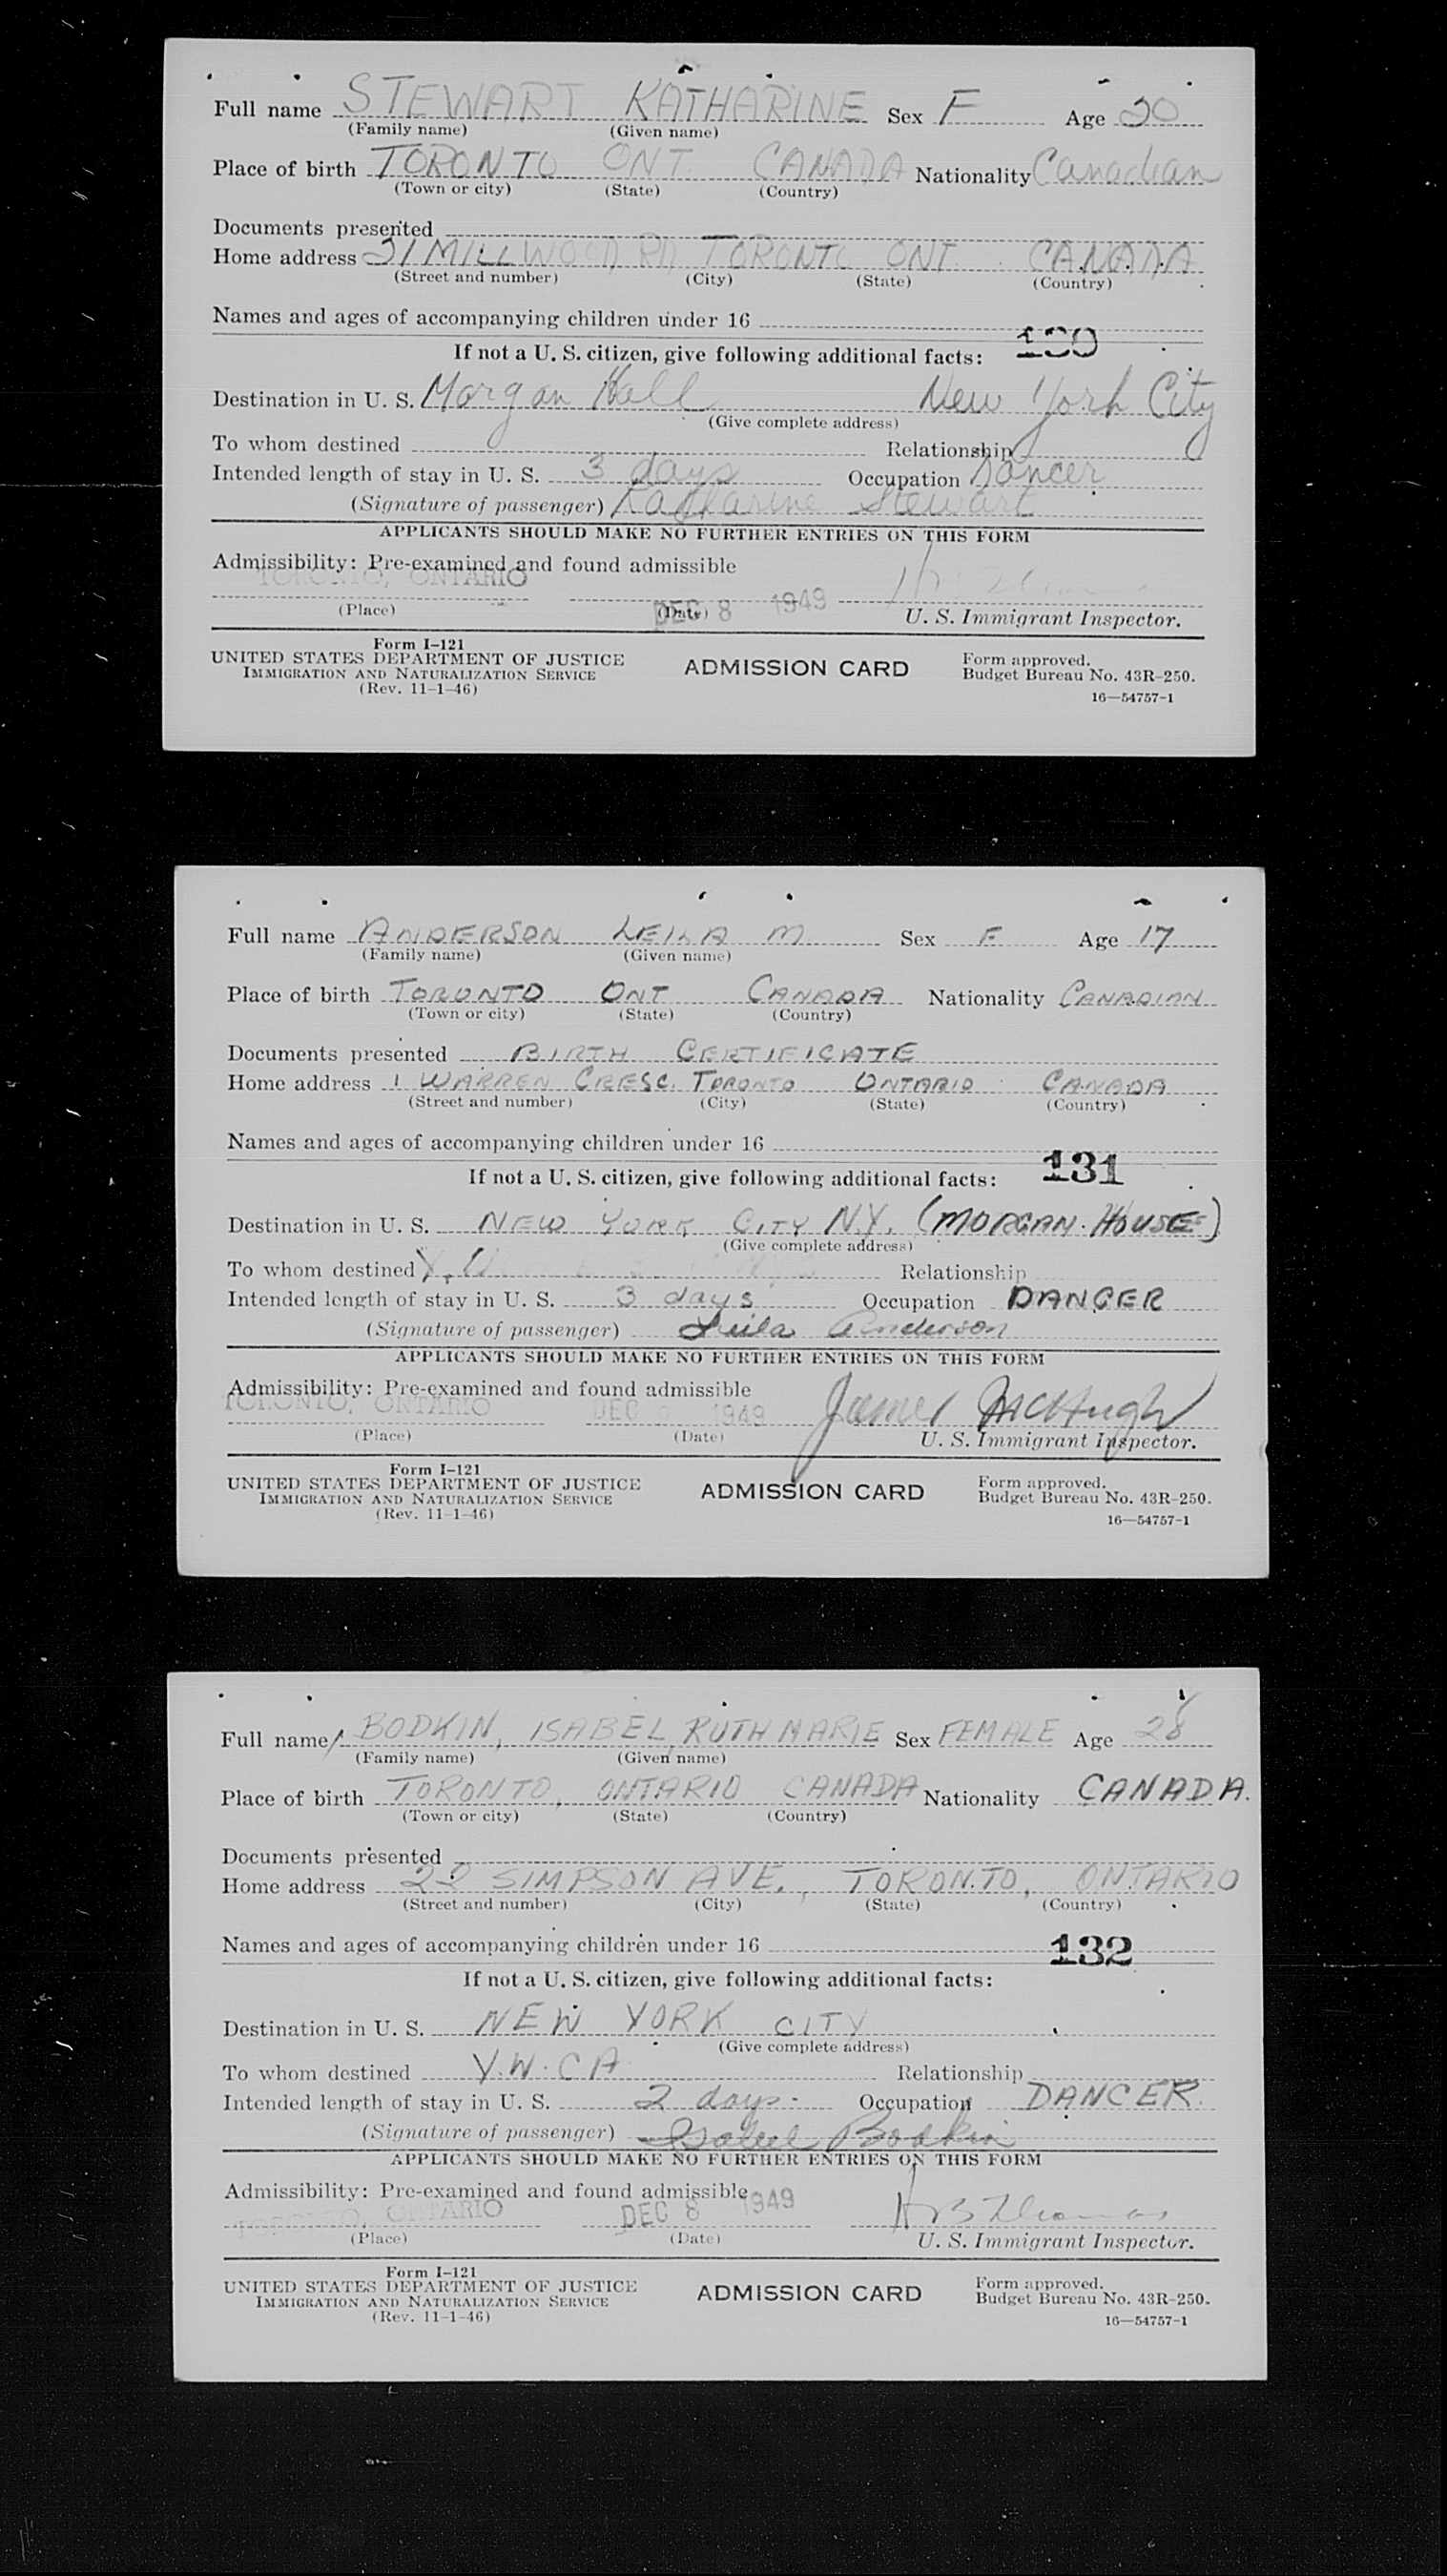 Full name STEWART KATHARINE Sex F Age 20
(Family name) (Given name)
Place of birth TORONTO ONT. CANADA Nationality Canadian
(Town or city) (State) (Country)
Documents presented
Home address 21 MILLWOOD RD TORONTO ONT CANADA
(Street and number) (City) (State) (Country)
Names and ages of accompanying children under 16
If not a U. S. citizen, give following additional facts:
Destination in U. S. Morgan Hall New York City
(Give complete address)
To whom destined Relationship
Intended length of stay in U. S. 3 days Occupation Dancer
(Signature of passenger) Katharine Stewart
APPLICANTS SHOULD MAKE NO FURTHER ENTRIES ON THIS FORM
Admissibility: Pre-examined and found admissible
TORONTO, ONTARIO DEC 8 1949
(Place) (Date) U. S. Immigrant Inspector.
Form I-121
UNITED STATES DEPARTMENT OF JUSTICE
IMMIGRATION AND NATURALIZATION SERVICE
(Rev. 11-1-46)
ADMISSION CARD
Form approved.
Budget Bureau No. 43R-250.
16—54757-1
Full name ANDERSON LEILA M Sex F Age 17
(Family name) (Given name)
Place of birth TORONTO ONT CANADA Nationality CANADIAN
(Town or city) (State) (Country)
Documents presented BIRTH CERTIFICATE
Home address 1 WARREN CRESC. TORONTO ONTARIO CANADA
(Street and number) (City) (State) (Country)
Names and ages of accompanying children under 16
131
If not a U. S. citizen, give following additional facts:
Destination in U. S. NEW YORK CITY N.Y. (MORGAN HOUSE)
(Give complete address)
To whom destined Relationship
Intended length of stay in U. S. 3 days Occupation DANCER
(Signature of passenger) Leila Anderson
APPLICANTS SHOULD MAKE NO FURTHER ENTRIES ON THIS FORM
Admissibility: Pre-examined and found admissible
TORONTO, ONTARIO DEC 1949 James McHugh
(Place) (Date) U. S. Immigrant Inspector.
Form I-121
UNITED STATES DEPARTMENT OF JUSTICE
IMMIGRATION AND NATURALIZATION SERVICE
(Rev. 11-1-46)
ADMISSION CARD
Form approved.
Budget Bureau No. 43R-250.
16—54757-1
Full name BODKIN, ISABEL RUTH MARIE Sex FEMALE Age 28
(Family name) (Given name)
Place of birth TORONTO, ONTARIO CANADA Nationality CANADA.
(Town or city) (State) (Country)
Documents presented
Home address 22 SIMPSON AVE., TORONTO, ONTARIO
(Street and number) (City) (State) (Country)
Names and ages of accompanying children under 16
132
If not a U. S. citizen, give following additional facts:
Destination in U. S. NEW YORK CITY
(Give complete address)
To whom destined Y.W.CA Relationship
Intended length of stay in U. S. 2 days Occupation DANCER.
(Signature of passenger) Isabel Bodkin
APPLICANTS SHOULD MAKE NO FURTHER ENTRIES ON THIS FORM
Admissibility: Pre-examined and found admissible
TORONTO, ONTARIO DEC 8 1949 H B Thomas
(Place) (Date) U. S. Immigrant Inspector.
Form I-121
UNITED STATES DEPARTMENT OF JUSTICE
IMMIGRATION AND NATURALIZATION SERVICE
(Rev. 11-1-46)
ADMISSION CARD
Form approved.
Budget Bureau No. 43R-250.
16—54757-1